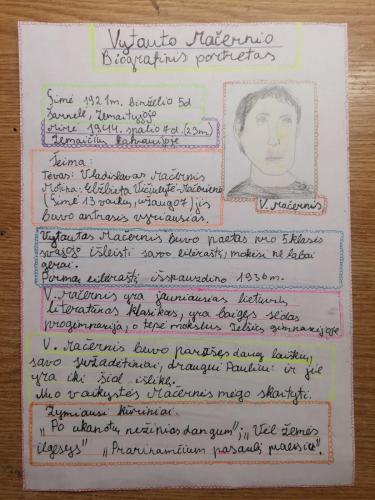 Vytauto Mačernio
Biografinis portretas
Gimė 1921m. birželio 5d
Šarnelė, Žemaitijoje
Mirė 1944. spalio 7d. (23m)
Žemaičių Kalvarijoje
V. Mačernis
Šeima:
Tėvas: Vladislovas Mačernis
Motina: Elžbieta
(Gimė 13 vaikų, užaugo 7) jis
buvo antrasis vyriausias.
Vytautas Mačernis buvo poetas pro 5 klasės
išleisti savo eilėraštį, mokėsi ne labai
gerai.
Pirmą eilėraštį išspausdino 1936m.
V. Mačernis yra jauniausias lietuvių
literatūros klasikas, yra baigęs Sedos
progimnaziją, o tęsė mokslus Telšių gimnazijoje
V. Mačernis buvo parašęs daug laiškų,
savo sužadėtiniai, draugui Pauliui ir jie
yra iki šiol išlikę.
Nuo vaikystės Mačernis mėgo skaityti.
Žymiausi kūriniai:
„Po ukanotu nežinios dangum"; „Vėl žemės
ilgesys" „Praeinančiam pasaulį praeisiu".